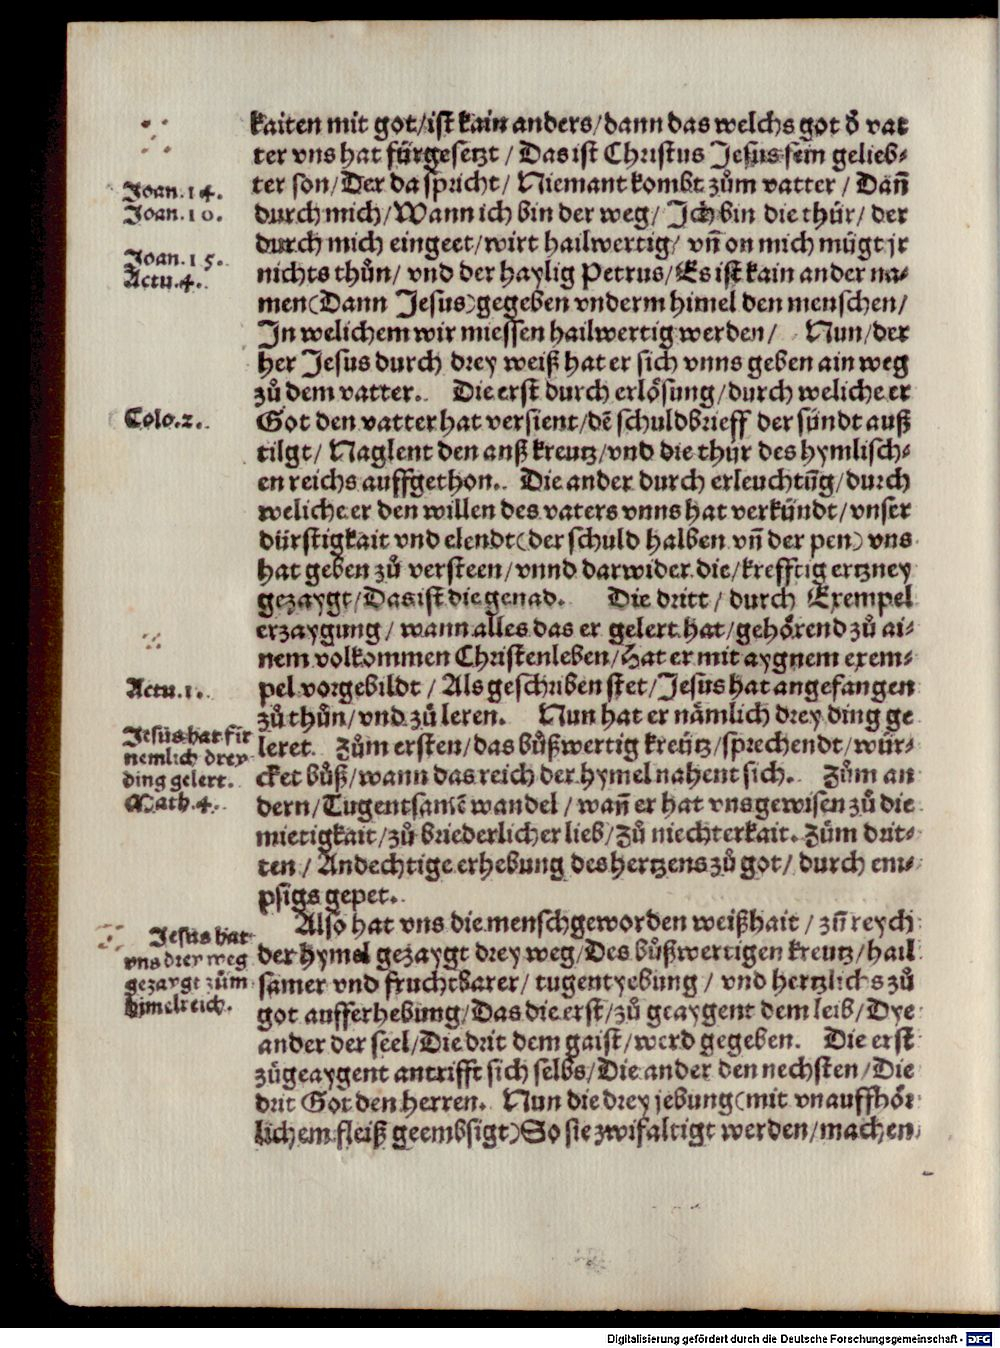 kaiten mit got/ist kain anders/dann das welchs got d̕ vat
ter vns hat fürgesetzt / Das ist Christus Jesus sein gelieb⸗
ter son/Der da spricht/ Niemant kombt zům vatter / Dañ
durch mich/Wann ich bin der weg/ Jch bin die thür/ der
durch mich eingeet/wirt hailwertig/ vñ on mich mügt jr
nichts thůn/ vnd der haylig Petrus/Es ist kain ander na⸗
men(Dann Jesus)gegeben vnderm himel den menschen/
Jn welichem wir miessen hailwertig werden/ Nun/der
her Jesus durch drey weiß hat er sich vnns geben ain weg
zů dem vatter. Die erst durch erlösung/durch weliche er
Got den vatter hat versient/dẽ schuldbrieff der sündt auß
tilgt/ Naglent den anß kreutz/vnd die thür des hymlisch⸗
en reichs auffgethon. Die ander durch erleuchtũg/durch
weliche er den willen des vaters vnns hat verkündt/vnser
dürstigkait vnd elendt(der schuld halben vñ der pen) vns
hat geben zů versteen/vnnd darwider die/krefftig ertzney
gezaygt/Das ist die genad. Die dritt / durch Exempel
erzaygung/ wann alles das er gelert hat/gehörend zů ai⸗
nem volkommen Christenleben/Hat er mit aygnem exem⸗
pel vorgebildt / Als geschriben stet/Jesus hat angefangen
zů thůn/vnd zů leren. Nun hat er nämlich drey ding ge
leret. Zům ersten/das bůßwertig kreütz/sprechendt/wür⸗
cket bůß/wann das reich der hymel nahent sich. Zům an
dern/Tugentsamẽ wandel / wañ er hat vns gewisen zů die
mietigkait/zů briederlicher lieb/Zů niechterkait. Zům drit⸗
ten / Andechtige erhebung des hertzens zů got/ durch em⸗
psigs gepet.
Also hat vns die menschgeworden weißhait / zũ reych
der hymel gezaygt drey weg/Des bůßwertigen kreutz/hail
samer vnd fruchtbarer/ tugentyebung / vnd hertzlichs zů
got aufferhebung/Das die erst/zů geaygent dem leib/Dye
ander der seel/Die drit dem gaist/werd gegeben. Die erst
zůgeaygent antrifft sich selbs/Die ander den nechsten/Die
drit Got den herren. Nun die drey jebung(mit vnauffhör
lichem fleiß geembsigt)So sie zwifaltigt werden/machen
Joan.14.
Joan.10.
Joan.15.
Actu.4.
Colo.2.
Actu.1.
Jesus hat für
nemlich drey
ding gelert.
Math.4.
Jesus hat
vns drey weg
gezaygt zům
himelreich.
Digitalisierung gefördert durch die Deutsche Forschungsgemeinschaft - DFG